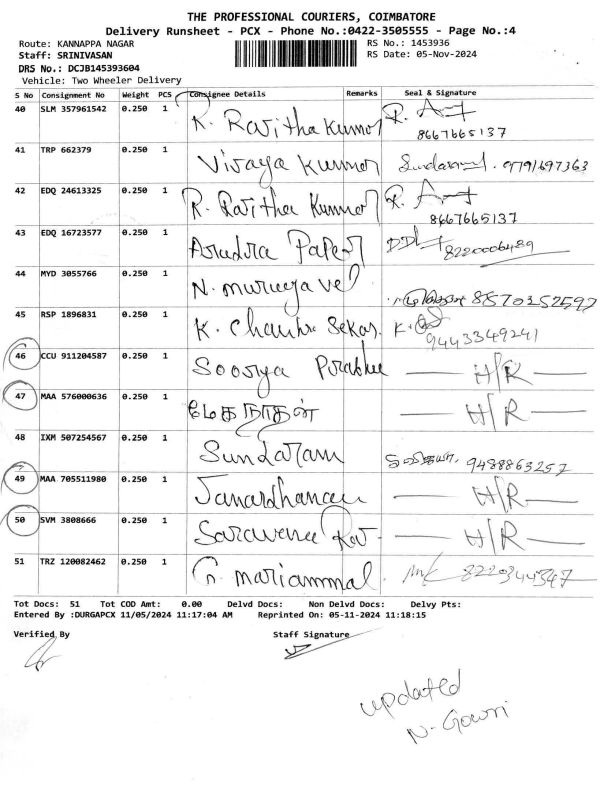 THE PROFESSIONAL COURIERS, COIMBATORE
Delivery Runsheet - PCX - Phone No.:0422-3505555 - Page No.:4
Route: KANNAPPA NAGAR RS No.: 1453936
Staff: SRINIVASAN RS Date: 05-Nov-2024
DRS No.: DCJB145393604
Vehicle: Two Wheeler Delivery
S No Consignment No Weight PCS Consignee Details Remarks Seal & Signature
40 SLM 357961542 0.250 1 R. Ravitha Kumnor 8667665137
41 TRP 662379 0.250 1 Vivaya Kumnor 9791697363
42 EDQ 24613325 0.250 1 R. Ravitha Kumnor 8667665137
43 EDQ 16723577 0.250 1 Arudra Paper 8220006489
44 MYD 3055766 0.250 1 N. murugavel 8870352597
45 RSP 1896831 0.250 1 K. Chandra Sekar. 9443349241
46 CCU 911204587 0.250 1 Soorya Prabhu H/R
47 MAA 576000636 0.250 1 மேகநாதன் H/R
48 IXM 507254567 0.250 1 Sundaram 9488863257
49 MAA 705511980 0.250 1 Janardhanan H/R
50 SVM 3808666 0.250 1 Saravana H/R
51 TRZ 120082462 0.250 1 G. mariammal. 8220344347
Tot Docs: 51 Tot COD Amt: 0.00 Delvd Docs: Non Delvd Docs: Delvy Pts:
Entered By :DURGAPCX 11/05/2024 11:17:04 AM Reprinted On: 05-11-2024 11:18:15
Verified By Staff Signature
updated
N. Gowri